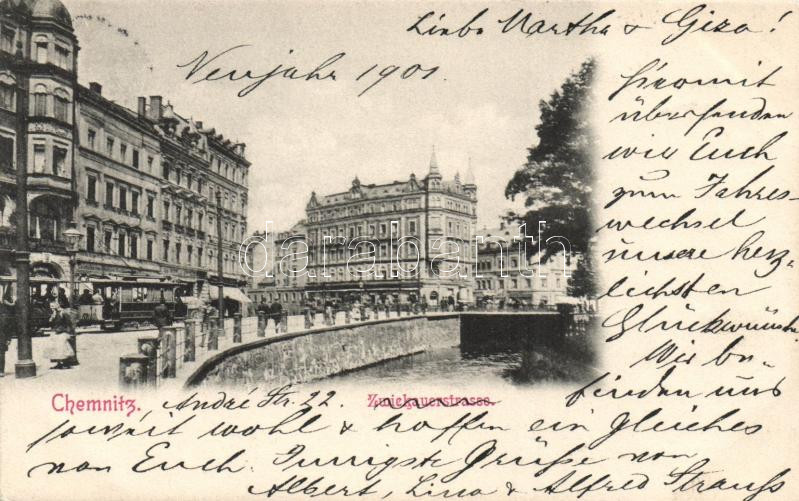 Liebe Martha & Giza!
Neujahr 1901
Hiermit
übersenden
wir Euch
zum Jahres-
wechsel
unsere herz-
lichsten
Glückwünsche
Wir be-
finden uns
darabanth.com
Chemnitz.
Zwickauerstrasse.
André Str. 22.
soweit wohl & hoffen ein Gleiches
von Euch. Innigste Grüße von
Albert, Lina & Alfred Strauß